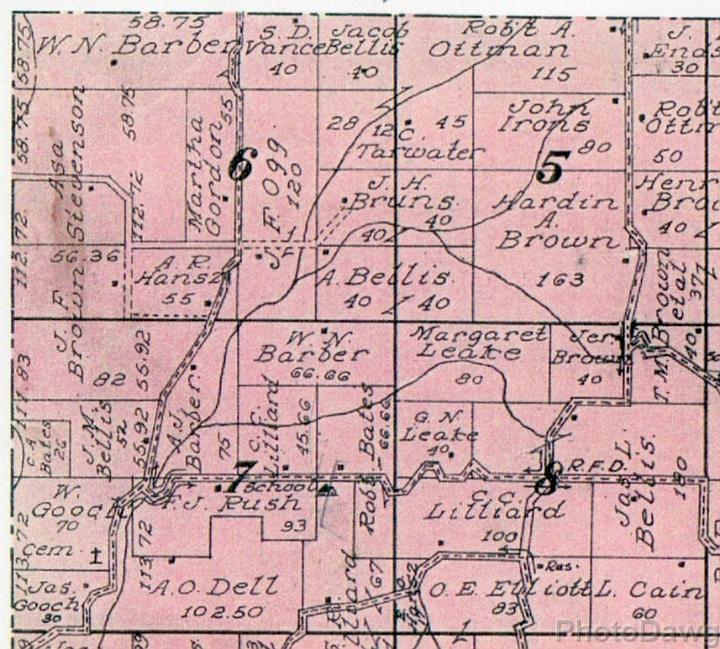 58.75
W. N. Barber
58.75
S. D.
Vance
40
Jacob
Bellis
40
Rob't A.
Ottman
115
J.
Ends
30
58.75
58.75
Asa
Stevenson
Martha
Gordon
55
6
J. F. Ogg
120
28
12
C.
Tarwater
45
John
Irons
80
5
Rob't
Ottm
50
112.72
112.72
J. H.
Bruns
40
40
Hardin
A.
Brown
163
Henr
Bro
40
56.36
A. R.
Hansz
55
A. Bellis
40
40
T. M. Brown
etal
371
40
J. F.
Brown
82
56.92
W. N.
Barber
66.66
Margaret
Leake
80
Jer
Brown
40
114.83
C. A.
Bates
26
J. N.
Bellis
52
56.92
A. J.
Barber
75
C. C.
Lilliard
45.66
Bates
66.66
Rob't
G. N.
Leake
40
Jas. L.
Bellis
180
7
School
8
R.F.D.
W.
Gooch
70
Cem
113.72
F. J. Rush
93
C. C.
Lilliard
100
113.72
Jas.
Gooch
30
A. O. Dell
102.50
67
Hansz
Res.
O. E. Elliott
83
L. Cain
60
PhotoDawg